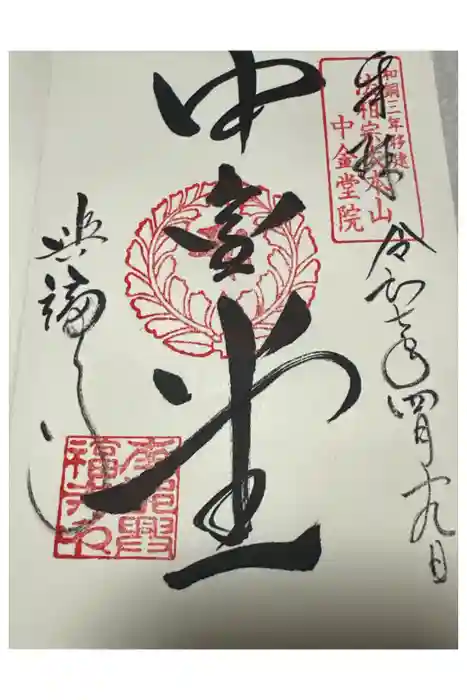 奉拝
和銅三年移建
法相宗大本山
中金堂院
令和七年四月十九日
中金堂
興福寺
南都興福寺印